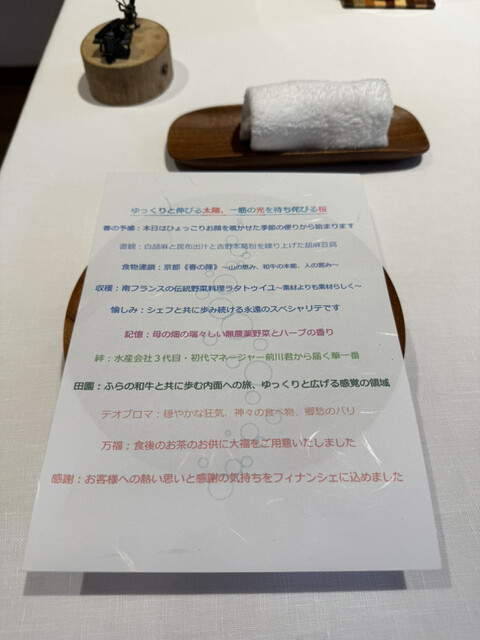 ゆっくりと伸びる太陽、一筋の光を待ち侘びる桜
春の予感：本日はひょっこりお顔を覗かせた季節の便りから始まります
直観：白胡麻と昆布出汁と吉野本葛粉を練り上げた胡麻豆腐
食物連鎖：京都《春の陣》～山の恵み、和牛の本能、人の営み～
収穫：南フランスの伝統野菜料理ラタトゥイユ～素材よりも素材らしく～
愉しみ：シェフと共に歩み続ける永遠のスペシャリテです
記憶：母の畑の瑞々しい無農薬野菜とハーブの香り
絆：水産会社３代目・初代マネージャー前川君から届く華一番
田園：ふらの和牛と共に歩む内面への旅、ゆっくりと広げる感覚の領域
テオブロマ：穏やかな狂気、神々の食べ物、郷愁のパリ
万福：食後のお茶のお供に大福をご用意いたしました
感謝：お客様への熱い思いと感謝の気持ちをフィナンシェに込めました